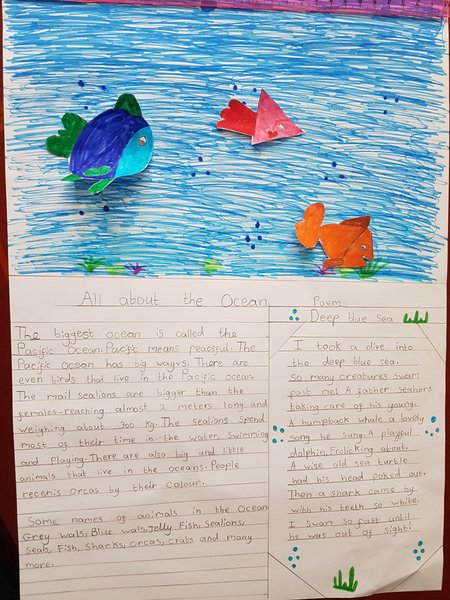 All about the Ocean
The biggest ocean is called the
Pacific Ocean. Pacific means peaceful. The
Pacific ocean has big wayvs. There are
even birds that live in the Pacific ocean.
The mail sealions are bigger than the
females-reaching almost 2 meters long and
weighing about 300 kg. The sealions spend
most of their time in the water, swimming
and playing. There are also big and little
animals that live in the oceans. People
recenis orcas by their colour.
Some names of animals in the Ocean
Grey wals, Blue wals, Jelly Fish, Sealions,
seals, Fish, Sharks, orcas, crabs and many
more.
Poem:
Deep blue sea
I took a dive into
the deep blue sea.
So many creatures swam
past me! A father seahors
taking care of his young.
A humpback whale a lovely
song he sung. A playful
dolphin Frolicking about.
A wise old sea turtle
had his head poked out.
Then a shark came by
with his teeth so white.
I swam so fast until
he was out of sight!